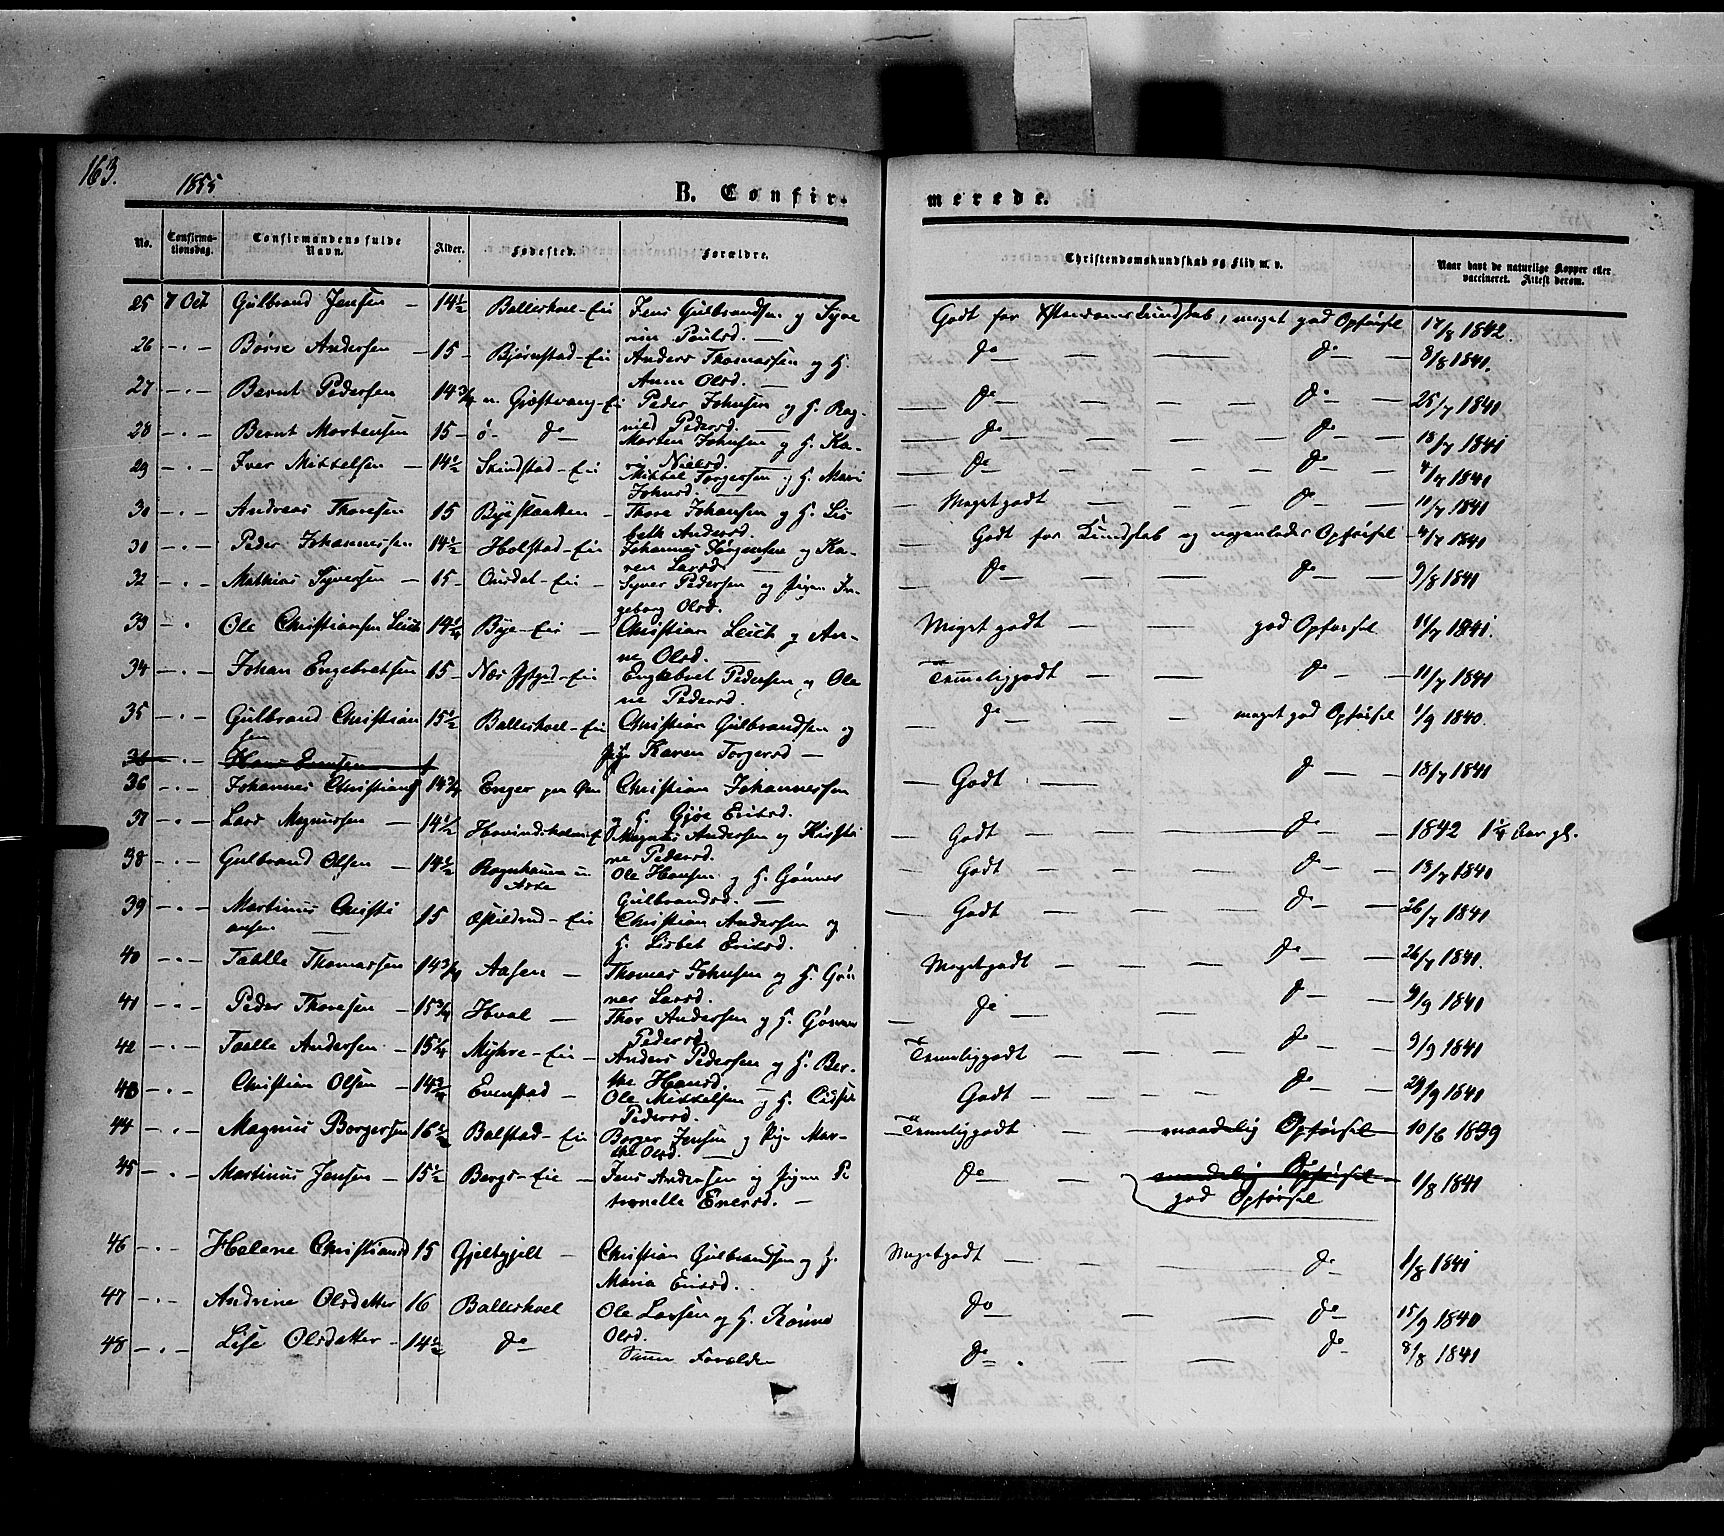 163.
1855
B. Confir-
merede.
No. Confirmationsdag. Confirmandens fulde Navn. Alder. Fødested. Forældre. Christendomskundskab og Flid m. v. Naar havt de naturlige Kopper eller vaccineret. Attest derom.
25 7 Oct Gulbrand Jensen — 14½ Ballershoel-Eie Jens Gulbrandsen og Syve
rine Paulsd. — Godt for Kundskab, meget god Opførsel 17/8 1842.
26 — " — Børre Andersen — 15 — Bjørnstad-Eie Anders Thomassen og H.
Anne Olsd. — do — — — do — 8/8 1841.
27 — " — Bernt Pedersen 14¾ n. Græstvang-Eie Peder Johnsen og H. Rag-
nild Pedersd. — do — — — do — 25/7 1841
28 — " — Bernt Mortensen 15 — ø- do — Morten Johnsen og H. Ka-
ri Nielsd. — do — — — do — 18/7 1841
29 — " — Iver Mikkelsen — 14½ Skindstad-Eie Mikkel Torgersen og H. Mari
Johnsd. — do — — — do — 4/7 1840
30 — " — Andreas Thoresen 15 Byestakken — Thore Johansen og H. Lis
beth Andersd. — Meget godt — — do — 11/7 1840
30 — " — Peder Johannessen 14½ Holstad-Eie Johannes Jørgensen og Ka-
ren Larsd. — Godt for Kundskab og Opførsel 4/7 1840
32 — " — Mathias Syversen — 15 — Ousdal-Eie — Syver Pedersen og Pigen In-
geborg Olsd. do — — — do — 9/8 1841
33 — " Ole Christiansen Leich 14¼ Bye-Eie — Christian Leich og An-
ne Olsd. — Meget godt — — god Opførsel 11/7 1841.
34 — " — Johan Engebretsen 15 — Næs Eie Engebret Pedersen og Ole
ne Pedersd. Temmelig godt — — do — 11/7 1841
35 — " — Gulbrand Christian
sen 15½ Ballershoel-Eie Christian Gulbrandsen og
Pige Karen Torgersd — do — — meget god Opførsel 1/9 1840.
36 — Hans Evensen
36 — " — Johannes Christians 14¾ Enger Christian Johannessen
og H. Gjøe Eriksd. — Godt — — do — 18/7 1841
37 — " — Lars Magnussen — 14½ Hovindsholm Magnus Andersen og Kirsti
ne Pedersd. — Godt — — do — 1842 1¼ Aar gl.
38 — " — Gulbrand Olsen — 14½ Ole Hansen og H. Gønner
Gulbrandsd. — Godt — — do — 13/7 1840
39 — " — Martinus Christi
ansen — 15 Æskildrud-Eie Christian Andersen og
H. Lisbet Eriksd. — Godt — — do — 26/7 1840
40 — " — Taelle Thomassen 14¾ Aasen — Thomas Johnsen og H. Gøn
ner Larsd. Meget godt — — do — 26/7 1840.
41 — " — Peder Thoresen — 15¾ Hval — Thor Andersen og H. Gønner
Pedersd. — do — — do — 9/9 1840
42 — " — Taelle Andersen — 15¼ Myhre-Eie — Anders Pedersen og H. Ber-
the Hansd. — Temmelig godt — — do — 9/9 1840
43 — " — Christian Olsen — 14¾ Evenstad — Ole Mikkelsen og H. Cidsel
Pedersd. Godt — — do — 29/9 1840
44 — " — Magnus Borgersen 16½ Balstad-Eie Borger Jensen og Pige Mar-
the Olsd. — Temmelig godt — maadelig Opførsel — 10/6 1839
45 — " — Martinus Jensen — 15½ Bergs-Eie — Jens Andersen og Pigen Pe
tronelle Enersd. — do — — maadelig Opførsel — 1/8 1841
god Opførsel
46 — " — Helene Christiansd 15 Gjelbgjelt — Christian Gulbrandsen og H.
Maria Eriksd. Meget godt — — do — 1/8 1841
47 — " — Andrine Olsdatter 16 Ballershoel Ole Larsen og H. Rønnu
Olsd. do — — do — 15/9 1840
48 — " — Lise Olsdatter — 14½ do Samme Forældre do — — do 8/8 1841